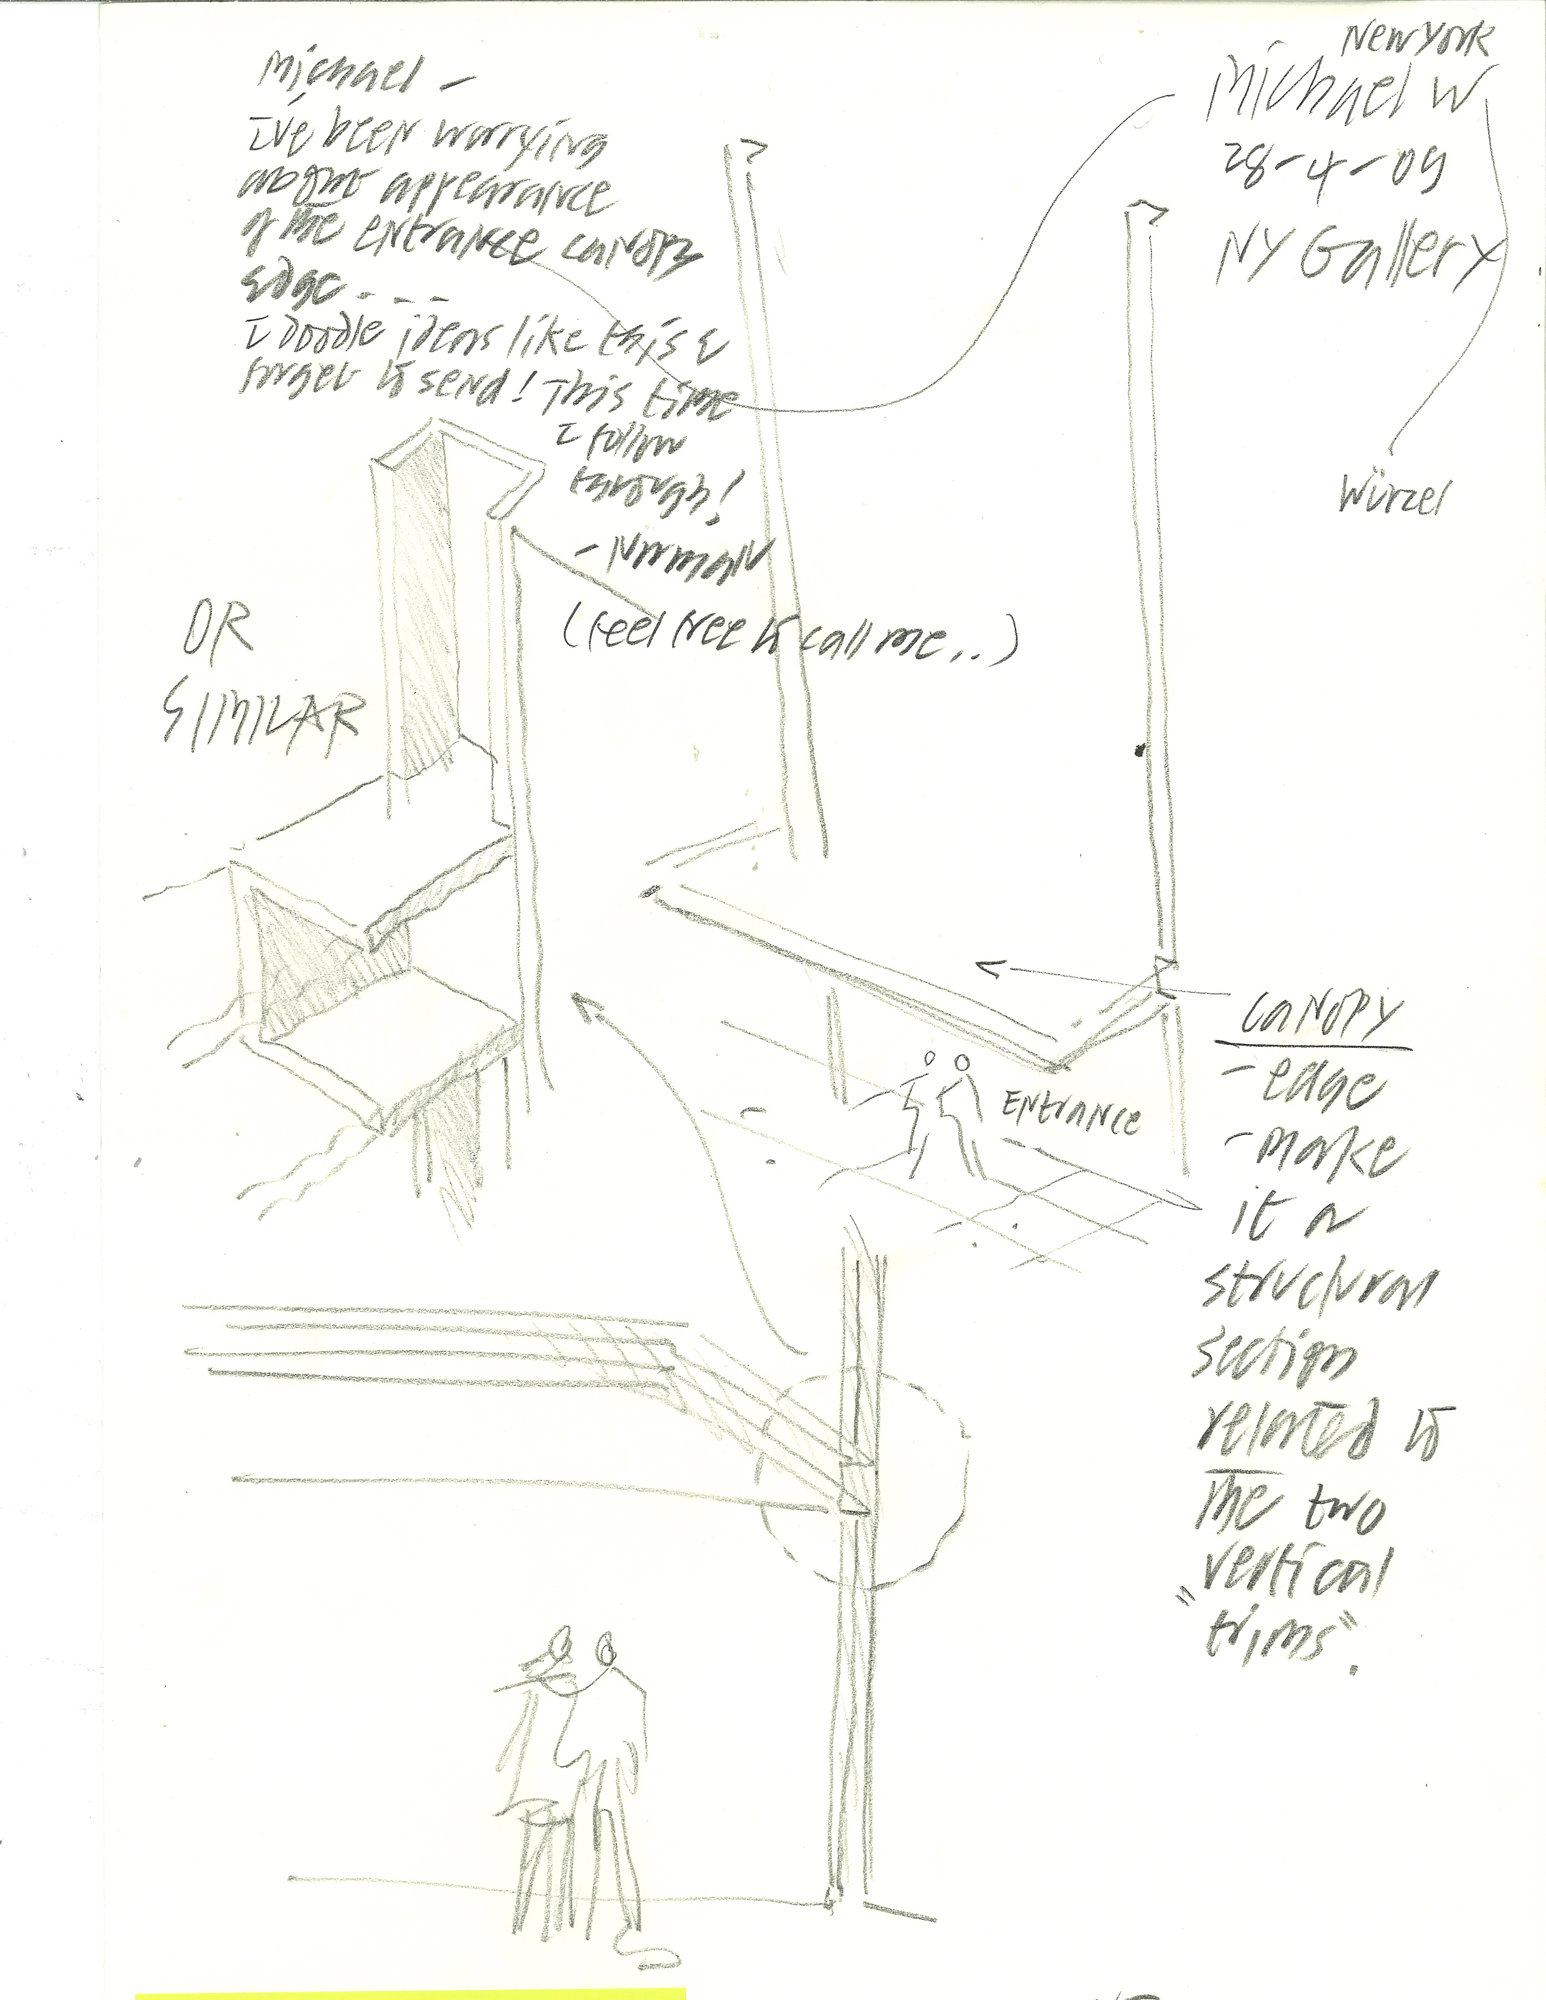 New York
Michael W
28-4-09
NY Gallery
Würzel
Michael –
I've been worrying
about appearance
of the entrance canopy
edge....
I doodle ideas like this &
forget to send! This time
I follow
through!
– Norman
(feel free to call me..)
OR
SIMILAR
ENtrANCE
CANOPY
– edge
– make
it a
structural
section
related to
the two
vertical
"trims".